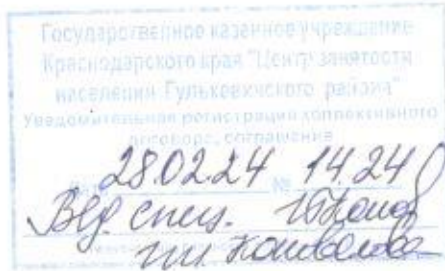 Государственное казенное учреждение
Краснодарского края "Центр занятости
населения Гулькевичского района"
Уведомительная регистрация коллективного
договора, соглашения
Дата 28.02.24 № 14.24
Вед. спец.